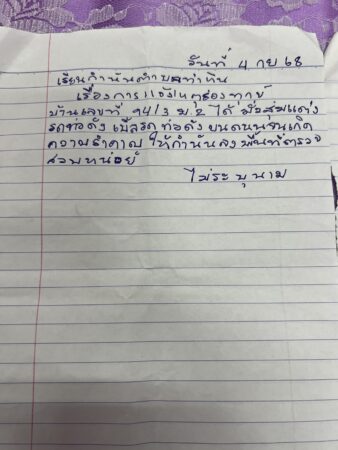 วันที่ 4 กย 68
เรียนกำนันตำบลท่าหิน
เรื่องการแจ้งเหตุร้องทุกข์
บ้านเลขที่ 14/3 ม.2 ได้ มั่วสุมแต่ง
รถท่อดัง เบิ้ลรถ ท่อดัง บนถนนจนเกิด
ความรำคาญ ให้กำนันลงพื้นที่ตรวจ
สอบหน่อย
ไม่ระบุนาม